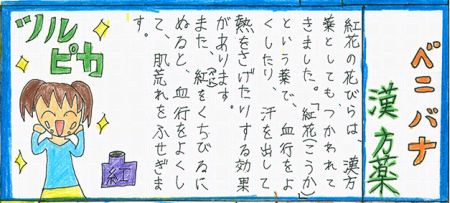 ベニバナ
漢方薬
紅花の花びらは、漢方
薬としてもつかわれて
きました。「紅花(こうか)」
という薬で、血行をよ
くしたり、汗を出して
熱をさげたりする効果
があります。
また、紅(べに)をくちびるに
ぬると、血行をよくし
て、肌荒れをふせぎま
す。
ツル
ピカ
紅